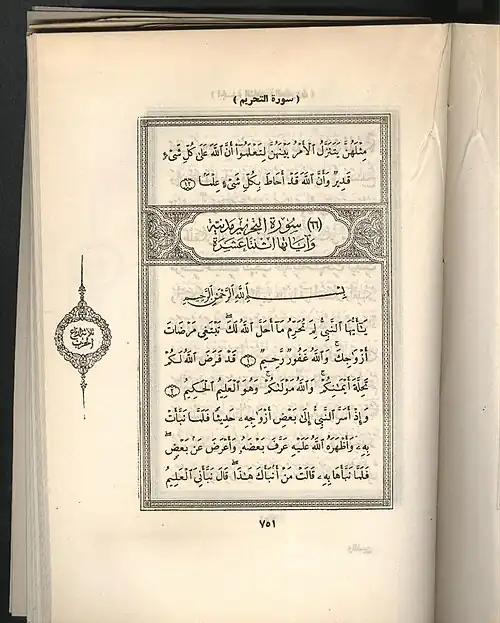 ( سورة التحريم )
مِثْلَهُنَّ يَتَنَزَّلُ ٱلْأَمْرُ بَيْنَهُنَّ لِتَعْلَمُوٓا۟ أَنَّ ٱللَّهَ عَلَىٰ كُلِّ شَىْءٍ
قَدِيرٌ وَأَنَّ ٱللَّهَ قَدْ أَحَاطَ بِكُلِّ شَىْءٍ عِلْمًۢا ١٢
(٦٦) سورة التحريم مدنية
وآياتها اثنتا عشرة
بِسْمِ ٱللَّهِ ٱلرَّحْمَٰنِ ٱلرَّحِيمِ
يَٰٓأَيُّهَا ٱلنَّبِىُّ لِمَ تُحَرِّمُ مَآ أَحَلَّ ٱللَّهُ لَكَ ۖ تَبْتَغِى مَرْضَاتَ
أَزْوَٰجِكَ ۚ وَٱللَّهُ غَفُورٌ رَّحِيمٌ ١ قَدْ فَرَضَ ٱللَّهُ لَكُمْ
تَحِلَّةَ أَيْمَٰنِكُمْ ۚ وَٱللَّهُ مَوْلَىٰكُمْ ۖ وَهُوَ ٱلْعَلِيمُ ٱلْحَكِيمُ ٢
وَإِذْ أَسَرَّ ٱلنَّبِىُّ إِلَىٰ بَعْضِ أَزْوَٰجِهِۦ حَدِيثًا فَلَمَّا نَبَّأَتْ
بِهِۦ وَأَظْهَرَهُ ٱللَّهُ عَلَيْهِ عَرَّفَ بَعْضَهُۥ وَأَعْرَضَ عَنۢ بَعْضٍ ۖ
فَلَمَّا نَبَّأَهَا بِهِۦ قَالَتْ مَنْ أَنۢبَأَكَ هَٰذَا ۖ قَالَ نَبَّأَنِىَ ٱلْعَلِيمُ
ثلاثة أرباع
الحزب
٧٥١